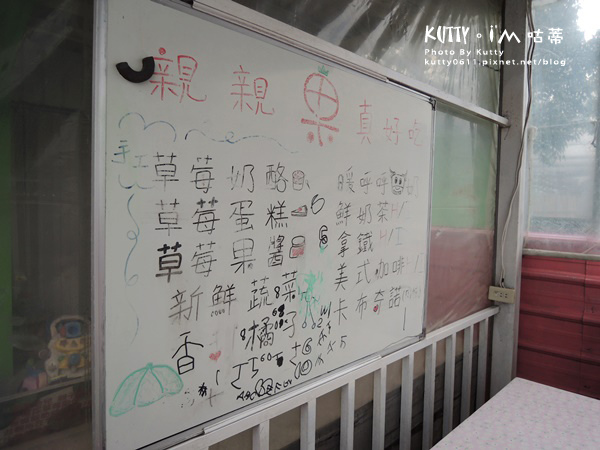 KUTTY。i'M 咕蒂
Photo By Kutty
kutty0611.pixnet.net/blog
親親果真好吃
手工
草莓奶酪
草莓蛋糕
草莓果醬
新鮮蔬菜
香 橘子
暖呼呼
鮮奶茶 H/I
拿鐵 H/I
美式咖啡 H/I
卡布奇諾